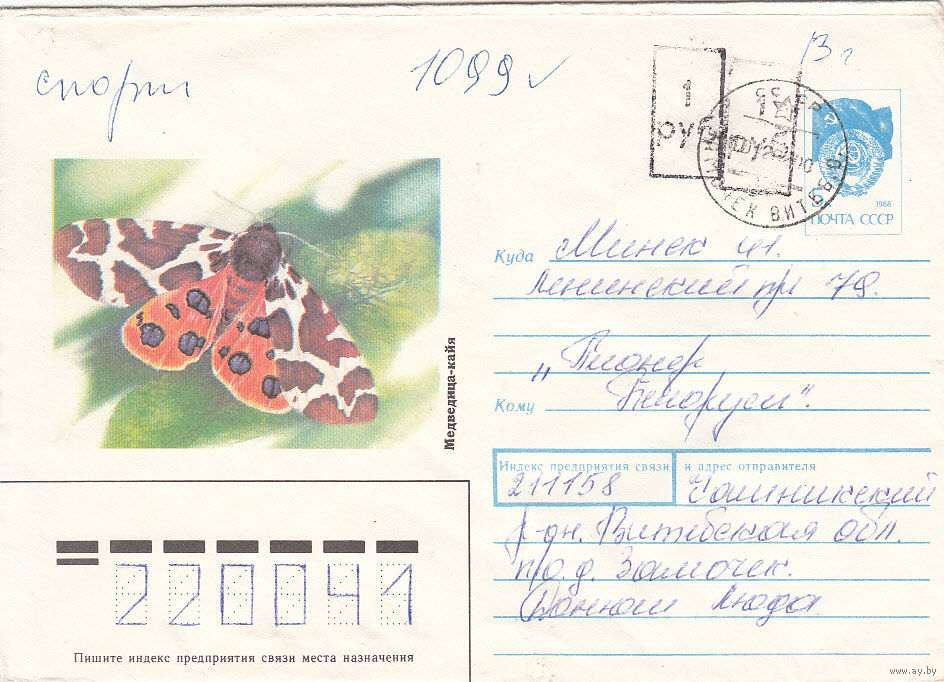 спорт
1099
13 г
1
ру
1
ру
СССР
ЗАМОЧЕК ВИТЕБ. О
1988
5
ПОЧТА СССР
Куда Минск ц.
Ленинский пр 79.
„Пионер
Кому Беларуси".
Медведица-кайя
Индекс предприятия связи и адрес отправителя
211158
р-он. Витебская обл.
п/о. д. Замочек.
Люда
220041
Пишите индекс предприятия связи места назначения
www.ay.by